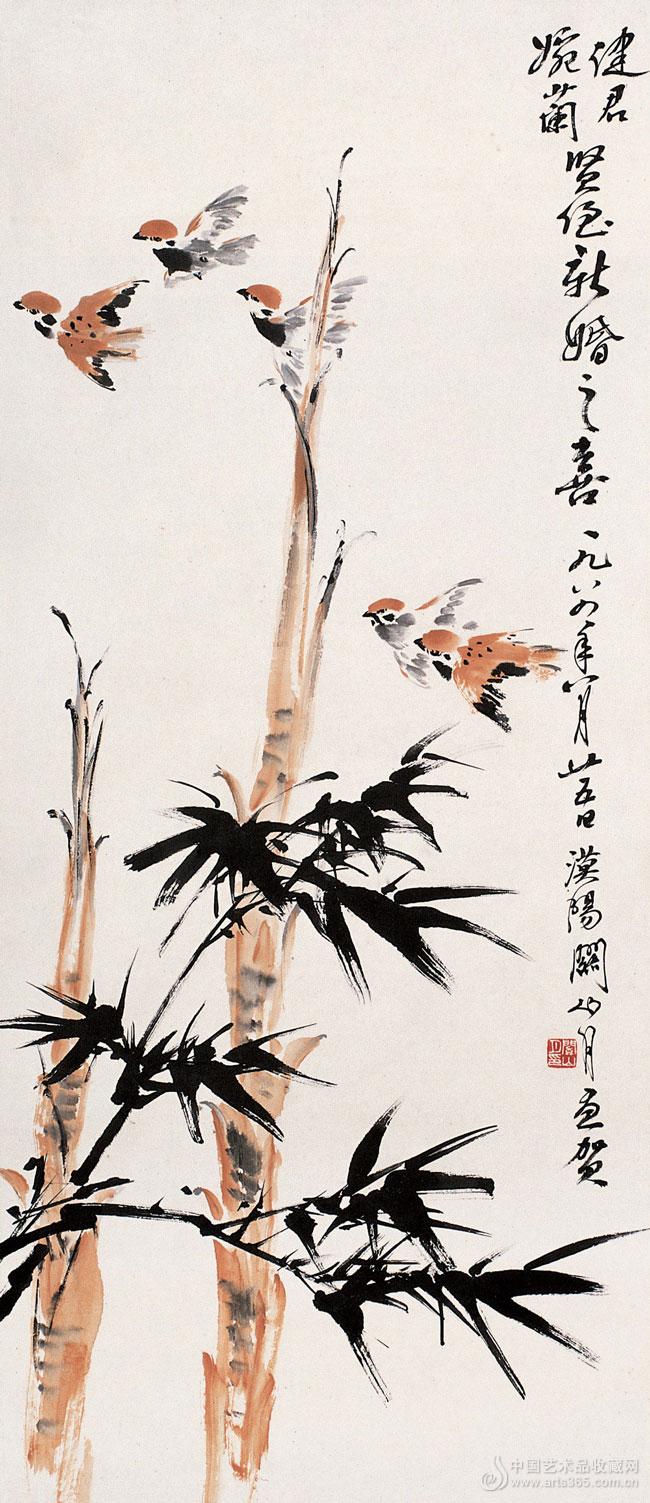 健君
婉蘭
贤侄新婚之喜 一九八年八月廿五日 漠陽關山月画贺
關山月印
中国艺术品收藏网
www.arts365.com.cn